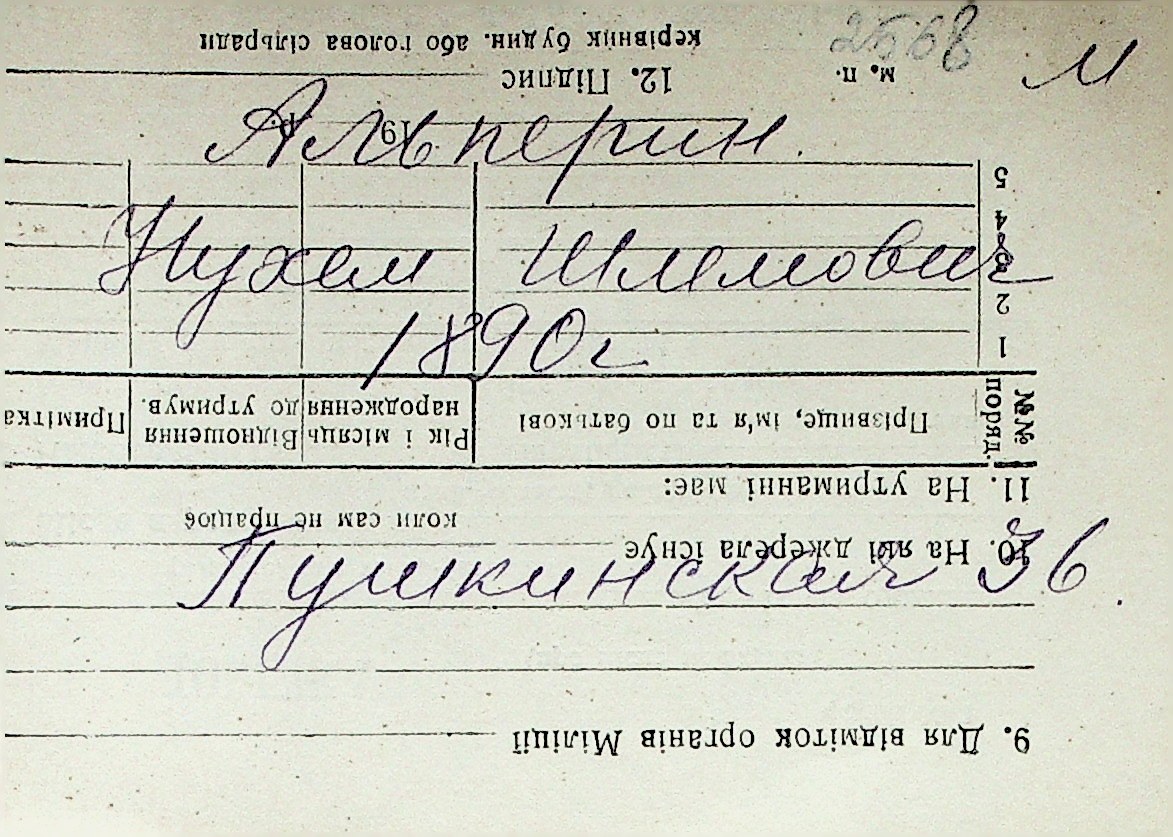 2568
М
Альперин.
Нухем Шлемович
1890 г
Пушкинская 36.
9. Для відміток органів Міліції
10. На які джерела існує
коли сам не працює
11. На утриманні має:
№№ поряд. Прізвище, ім'я та по батькові Рік і місяць народження Відношення до утримув. Примітка
1
2
3
4
5
19 р.
12. Підпис
м. п.
керівник будин. або голова сільради